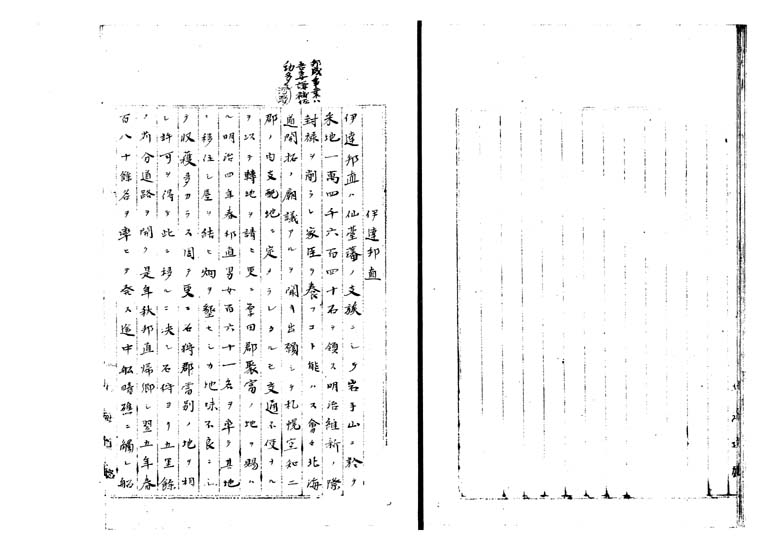 伊達邦直
伊達邦直ハ仙臺藩ノ支族ニシテ岩手山ニ於テ
采地一萬四千六百四十石ヲ領ス明治維新ノ際
封禄ヲ削ラレ家臣ヲ養フコト能ハス會々北海
道開拓ノ廟議アルヲ聞キ出願シテ札幌空知二
郡ノ内支配地ニ定メラレタルモ交通不便ナル
ヲ以テ轉地ヲ請ヒ更ニ厚田郡聚富ノ地ヲ賜ハ
ル明治四年春邦直男女百六十一名ヲ率テ其地
ニ移住シ屋ヲ結ヒ畑ヲ墾セシカ地味不良ニシ
テ收穫多カラス因テ更ニ石狩郡當別ノ地ヲ相
シ許可ヲ得テ此ニ移ルニ決シ石狩ヨリ五里餘
ノ所分道路ヲ開ク是年秋邦直帰郷シ翌五年春
百八十餘名ヲ率ヒテ發ス途中船暗礁ニ觸レ船